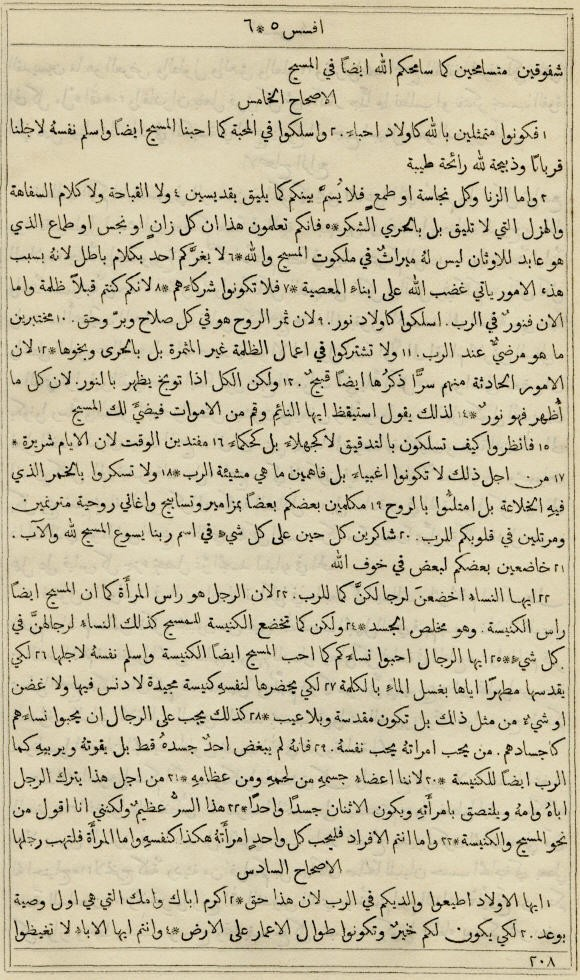 افسس ٥ * ٦
شفوقين متسامحين كما سامحكم الله ايضًا في المسيح
الاصحاح الخامس
١ فكونوا متمثلين بالله كاولاد احباء . ٢ واسلكوا في المحبة كما احبنا المسيح ايضًا واسلم نفسهُ لاجلنا
قربانًا وذبيحة لله رائحة طيبة
٣ واما الزنا وكل نجاسة او طمع فلا يُسمَّ بينكم كما يليق بقديسين ٤ ولا القباحة ولا كلام السفاهة
والهزل التي لا تليق بل بالحري الشكر * ٥ فانكم تعلمون هذا ان كل زانٍ او نجس او طماع الذي
هو عابد للاوثان ليس لهُ ميراثٌ في ملكوت المسيح والله * ٦ لا يغرَّكم احد بكلام باطل لانهُ بسبب
هذه الامور ياتي غضب الله على ابناء المعصية * ٧ فلا تكونوا شركاءهم * ٨ لانكم كنتم قبلاً ظلمة واما
الان فنورٌ في الرب . اسلكوا كاولاد نور . ٩ لان ثمر الروح هو في كل صلاح وبرّ وحق . ١٠ مختبرين
ما هو مرضيٌّ عند الرب . ١١ ولا تشتركوا في اعمال الظلمة غير المثمرة بل بالحرى وبخوها * ١٢ لان
الامور الحادثة منهم سرًّا ذكرُها ايضًا قبيحٌ . ١٣ ولكن الكل اذا توبخ يظهر بالنور . لان كل ما
أُظهر فهو نورٌ * ١٤ لذلك يقول استيقظ ايها النائم وقم من الاموات فيضيَّ لك المسيح
١٥ فانظروا كيف تسلكون بالتدقيق لا كجهلاء بل كحكماء ١٦ مفتدين الوقت لان الايام شريرة *
١٧ من اجل ذلك لا تكونوا اغبياء بل فاهمين ما هي مشيئة الرب * ١٨ ولا تسكروا بالخمر الذي
فيهِ الخلاعة بل امتلئوا بالروح ١٩ مكلمين بعضكم بعضًا بمزامير وتسابيح واغاني روحية مترنمين
ومرتلين في قلوبكم للرب . ٢٠ شاكرين كل حين على كل شيء في اسم ربنا يسوع المسيح لله والآب .
٢١ خاضعين بعضكم لبعض في خوف الله
٢٢ ايها النساء اخضعنَ لرجالكنَّ كما للرب . ٢٣ لان الرجل هو راس المرأَة كما ان المسيح ايضًا
راس الكنيسة . وهو مخلص الجسد * ٢٤ ولكن كما تخضع الكنيسة للمسيح كذلك النساء لرجالهنَّ في
كل شيء * ٢٥ ايها الرجال احبوا نساءكم كما احب المسيح ايضًا الكنيسة واسلم نفسهُ لاجلها ٢٦ لكي
يقدسها مطهرًا اياها بغسل الماء بالكلمة ٢٧ لكي يحضرها لنفسهِ كنيسة مجيدة لا دنس فيها ولا غضن
او شيءٌ من مثل ذالك بل تكون مقدسة وبلا عيب * ٢٨ كذلك يجب على الرجال ان يحبوا نساءهم
كاجسادهم . من يحب امراتهُ يحب نفسهُ . ٢٩ فانهُ لم يبغض احدٌ جسدهُ قط بل يقوتهُ ويربيهِ كما
الرب ايضًا للكنيسة * ٣٠ لاننا اعضاء جسمهِ من لحمهِ ومن عظامهِ * ٣١ من اجل هذا يترك الرجل
اباهُ وامهُ ويلتصق بامرأَتهِ ويكون الاثنان جسدًا واحدًا * ٣٢ هذا السرُّ عظيمٌ ولكنني انا اقول من
نحو المسيح والكنيسة * ٣٣ واما انتم الافراد فليحب كل واحدٍ امرأَتهُ هكذا كنفسهِ واما المرأَة فلتهب رجلها
الاصحاح السادس
١ ايها الاولاد اطيعوا والديكم في الرب لان هذا حق * ٢ اكرم اباك وامك التي هي اول وصية
بوعد . ٣ لكي يكون لكم خيرٌ وتكونوا طوال الاعمار على الارض * ٤ وانتم ايها الاباء لا تغيظوا
٢٠٨